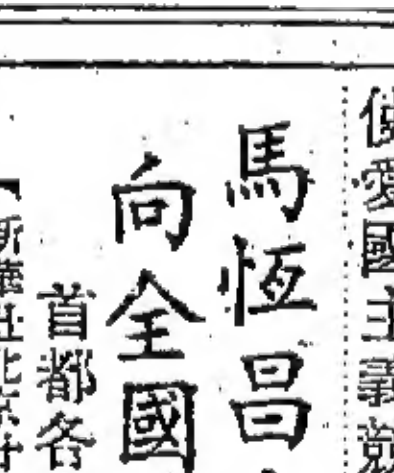 使愛國主義競
馬恆昌
向全國
首都各
【新華社北京